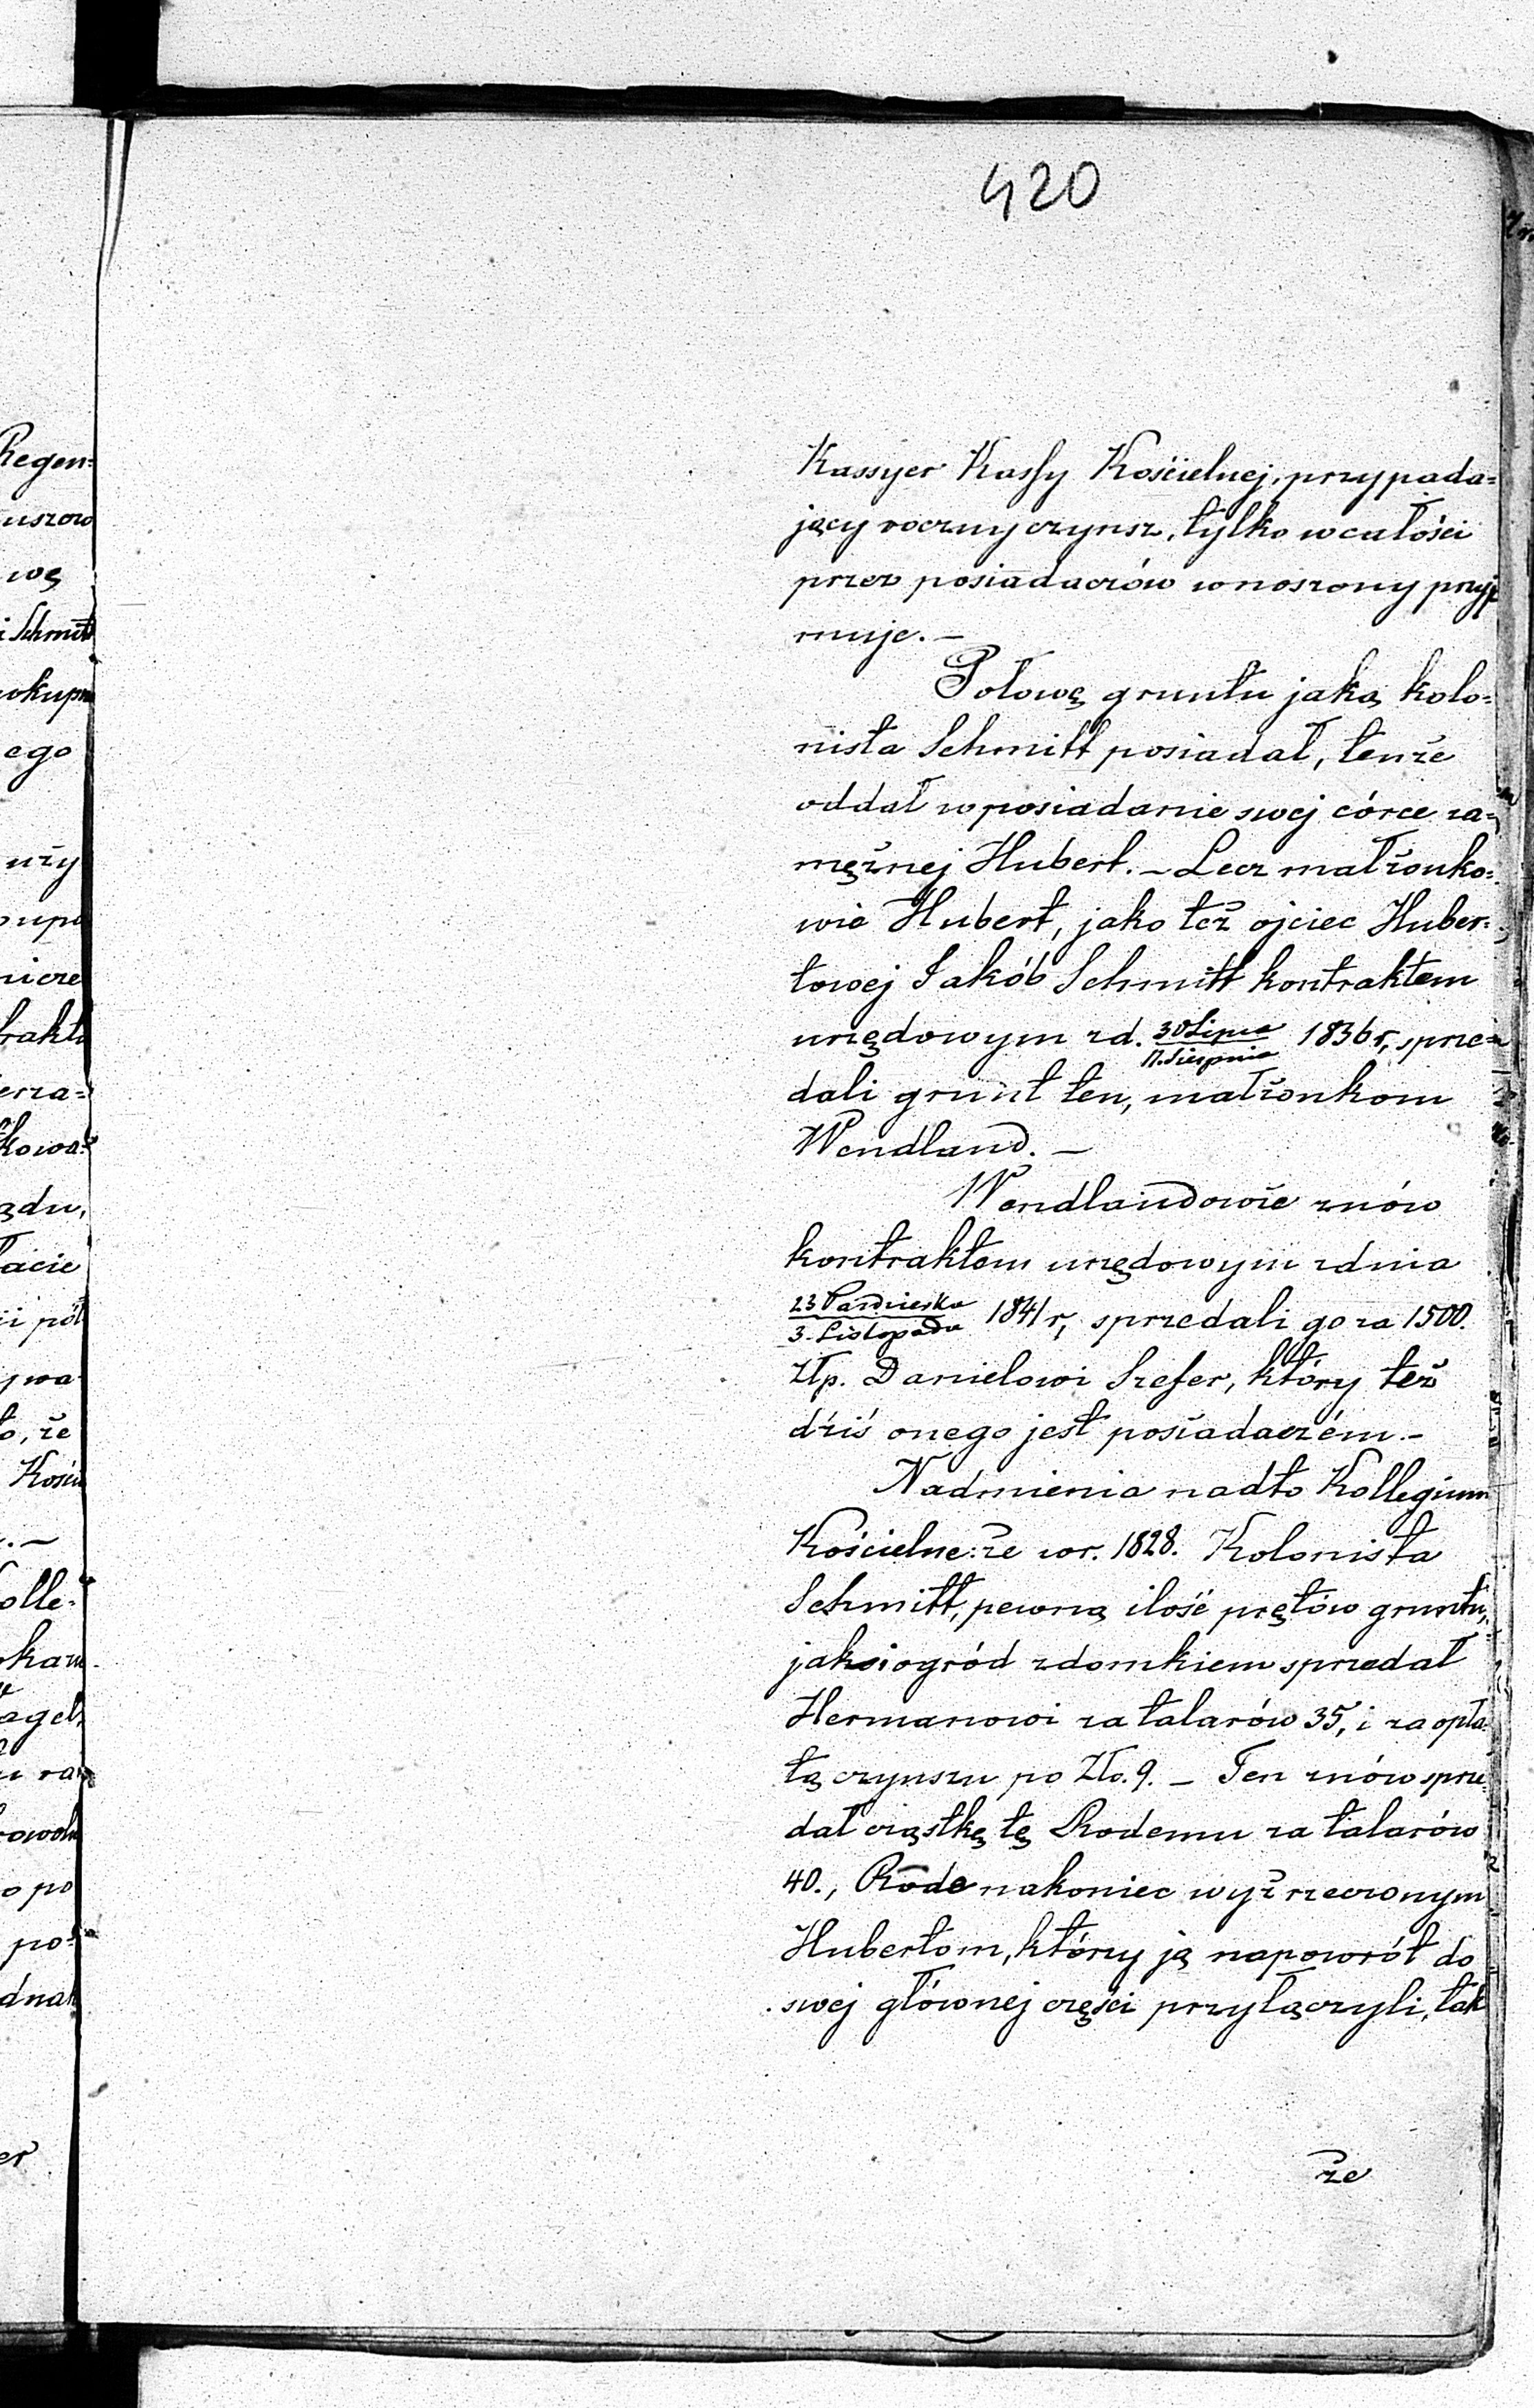 420
Kassyer Kassy Kościelnej, przypada=
jący roczny czynsz, tylko w całości
przez posiadaczów wnoszony przyj
muje. –
Połowę gruntu jaką kolo=
nista Schmitt posiadał, tenże
oddał w posiadanie swej córce za=
mężnej Hubert. – Lecz małżonko=
wie Hubert, jako też ojciec Huber=
towej Jakób Schmitt kontraktem
urzędowym zd. 30 Lipca / 11. Sierpnia 1836 r, sprze=
dali grunt ten, małżonkom
Wendland. –
Wendlandowie znów
kontraktem urzędowym z dnia
23 Października / 3. Listopada 1841 r, sprzedali go za 1500.
Złp. Danielowi Szefer, który też
dziś onego jest posiadaczém. –
Nadmienia nadto Kollegium
Kościelne: że w r. 1828. Kolonista
Schmitt, pewną ilość prętów gruntu,
jako i ogród z domkiem sprzedał
Hermanowi za talarów 35, i za opła=
tą czynszu po Zło. 9. – Ten znów sprze=
dał cząstkę tę Rodemu za talarów
40., Rode nakoniec wyż rzeczonym
Hubertom, którzy ją napowrót do
swej głównej części przyłączyli, tak
że
Regen=
uszow
wę
i Schmitt
ego
uży
erza=
kowa=
ądu,
acie
i pół
ywa
to, że
olle=
o po
po=
dnak
er